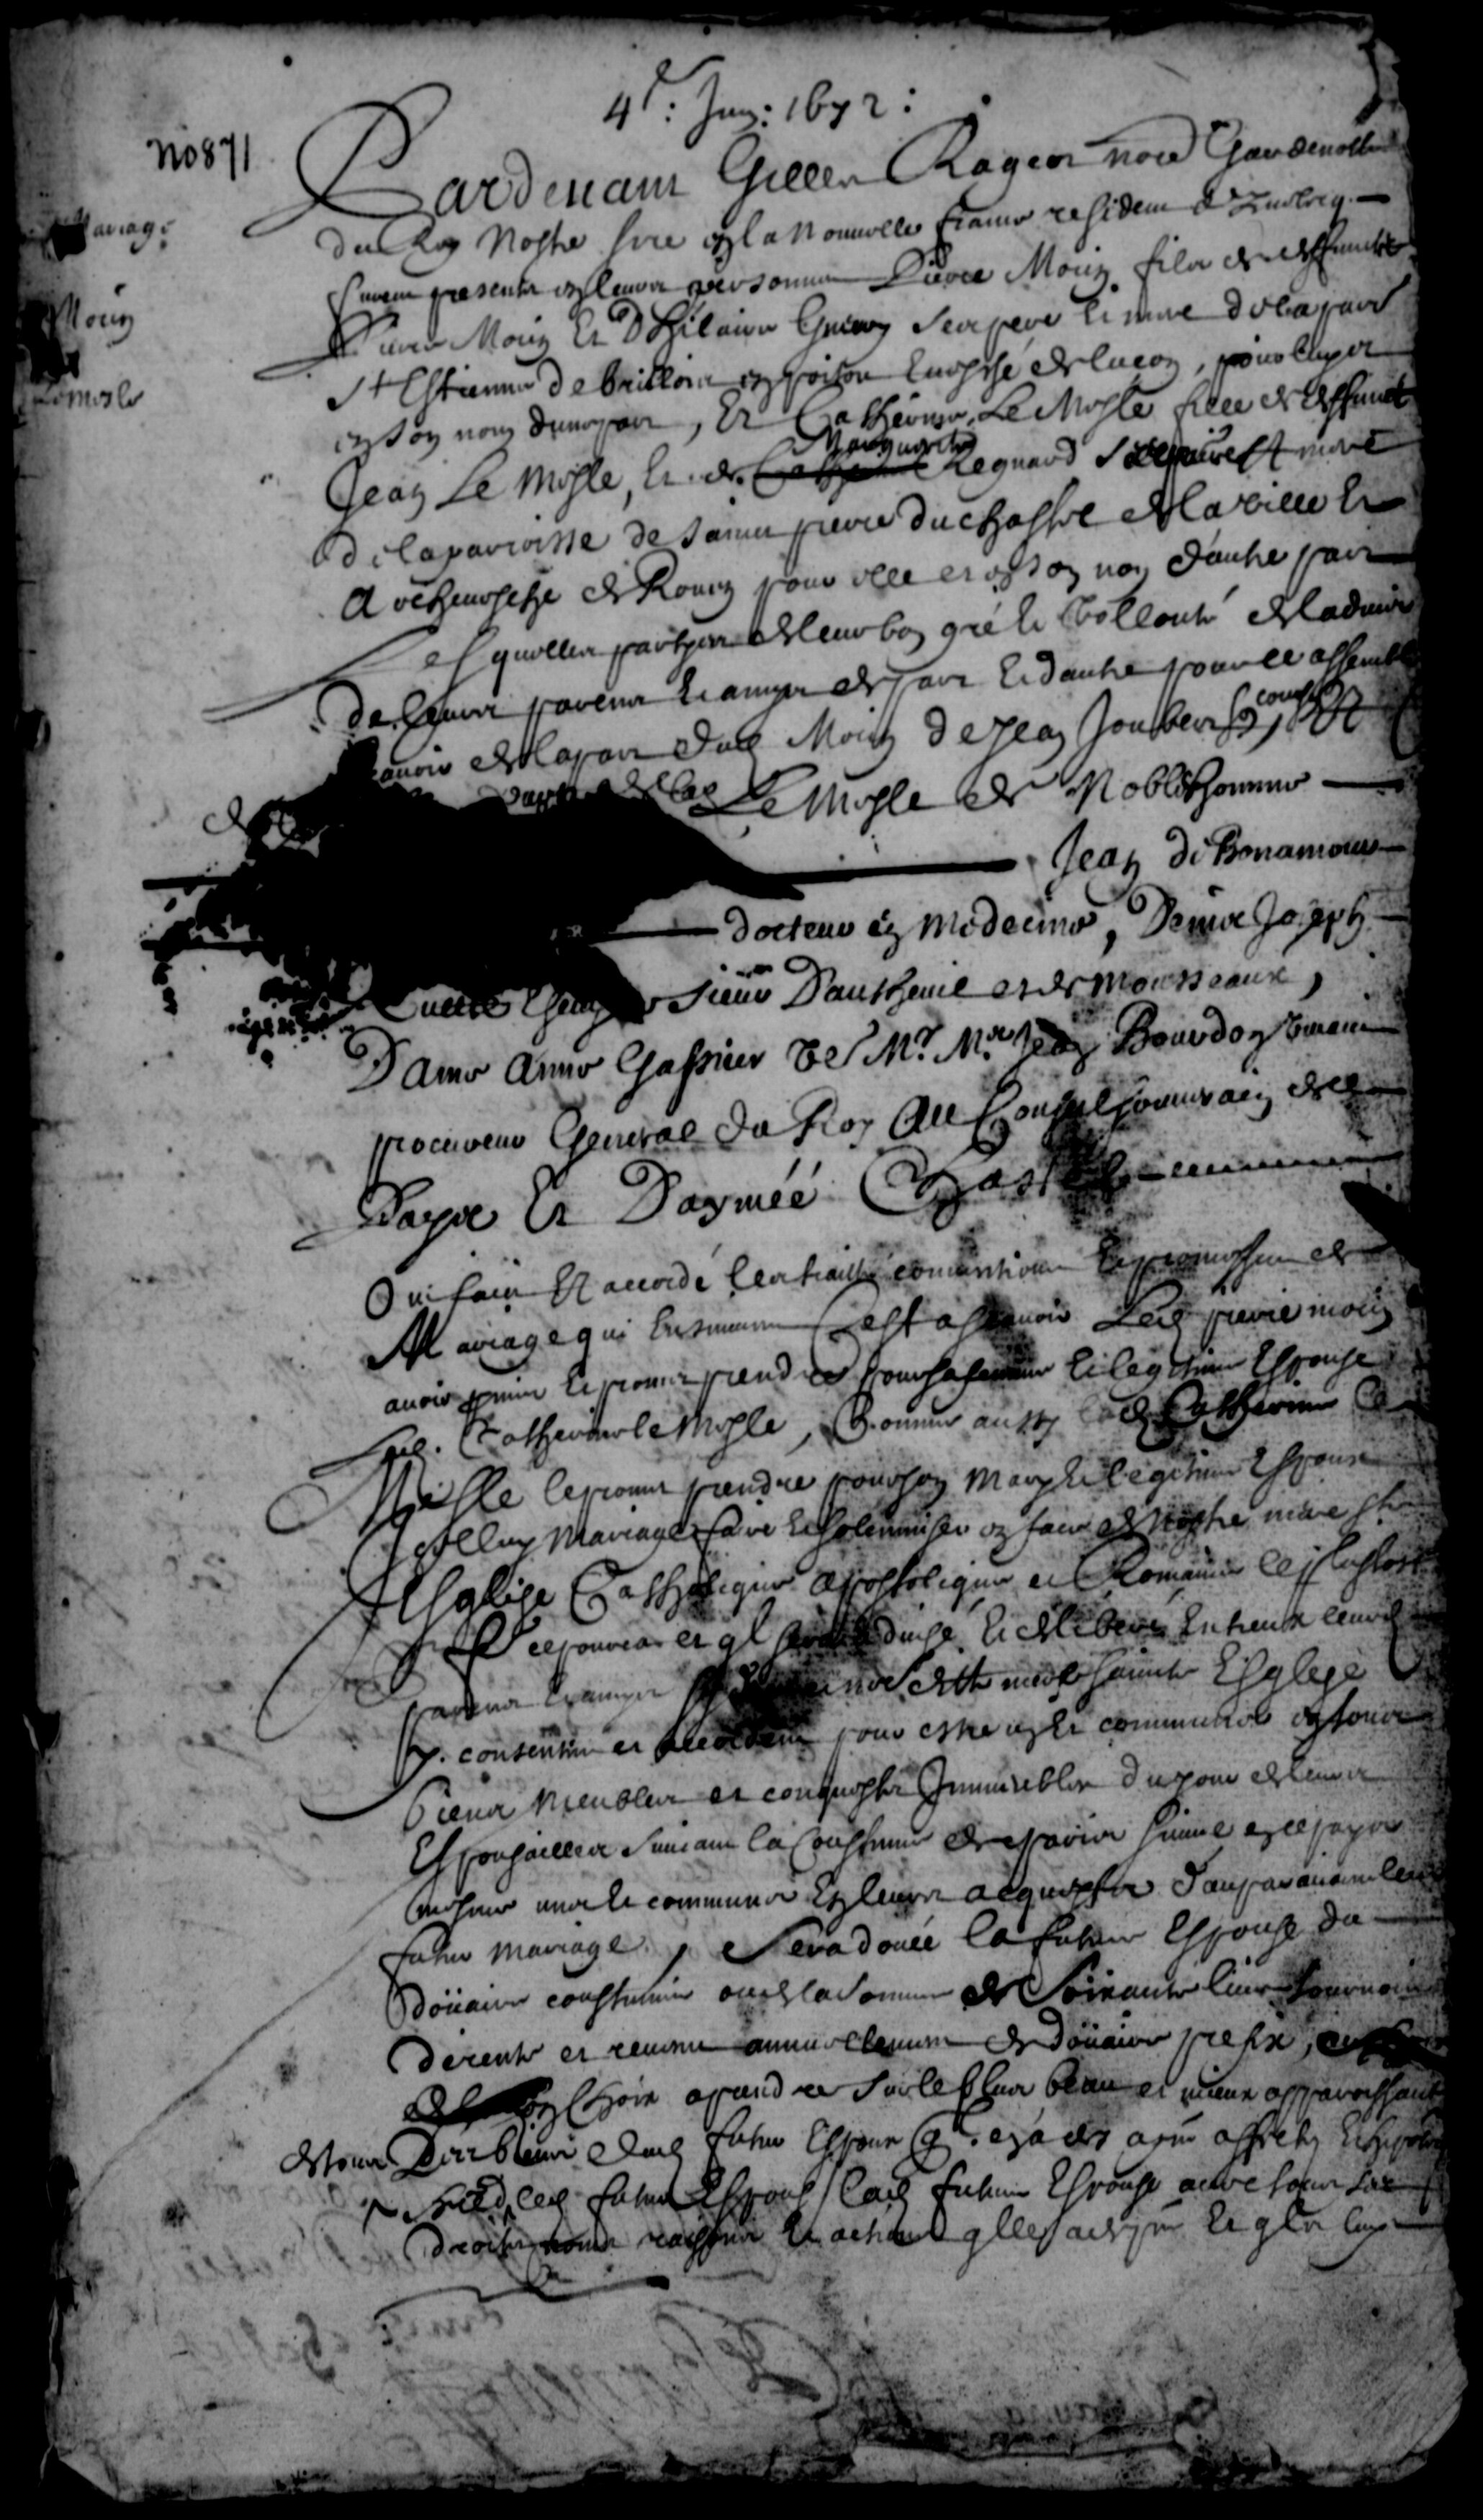 4e: Jun: 1672:
no871
Mariage
Morin
Lemesle
Pardevant Gilles Rageot nore Gardenotte
du Roy Nostre sire en la Nouvelle france residant a Quebecq.
furent presents en leurs personnes Pierre Morin fils de deffuncts
Pierre Morin Et D hilaire Guiry ses pere Et mere de la parr
St Estienne de brilloire en poitou Evesché de lucon, pour luy et
en son nom dune part, Et Catherine Le Mesle fille de deffunct
Jean Le Mesle, Et de Marguerite Regnard ses pere Et mere
de la parroisse de Sainct pierre du chastre de la ville Et
Archevesché de Rouen pour elle et en son nom d'autre part
Lesquelles partyes de leur bon gré Et Vollonté de ladvis
De leurs parens Et amys de part Et dautre pour ce assemblé
scavoir de la part dud Morin de Jean Joubert
Le Mesle de Noble homme
Jean de Bonamour
docteur en Medecine, Denis Joseph
Ruette Sieur Dautheuil et de Monsseaux,
Dame Anne Gasnier Me Jean Bourdon vivant
procureur General du Roy Au Conseil souverain de ce
Pays Et Daymée Chastel
Ont faict Et accordé les traitté conventions Et promesses de
Mariage qui Ensuivent Cest asscavoir Led pierre morin
avoir promis Et promet prendre pour sa femme Et legitime Espouse
Lad. Catherine le Mesle, Comme aussy lad Catherine Le
Mesle le promet prendre pour son Mary Et legitime Espoux
Icelluy Mariage faire Et solemniser en face de Nostre mere ste
Esglise Catholique Apostolique et Romaine le plustost
que ce pourra et ql sera advisé Et deliberé Entreux leurs
parens Et amys sy Dieu et nostre mere saincte Esglise
sy consentent et accordent pour estre uns Et communs en tous
biens Meubles et conquests Immeubles du jour de leurs
Espousailles suivant la Coustume de paris suivie en ce pays
futur mariage, Sera douée la future Espouse du
douaire coustumier ou de la somme de Soixante livres tournois
de rente et revenu annuellement de douaire prefix,
choix a prendre sur le plus beau et mieux apparoissant
de tous Des biens dud futur Espoux
led futur Espoux lad future Espouse avec tous ses
droits noms raisons Et actions